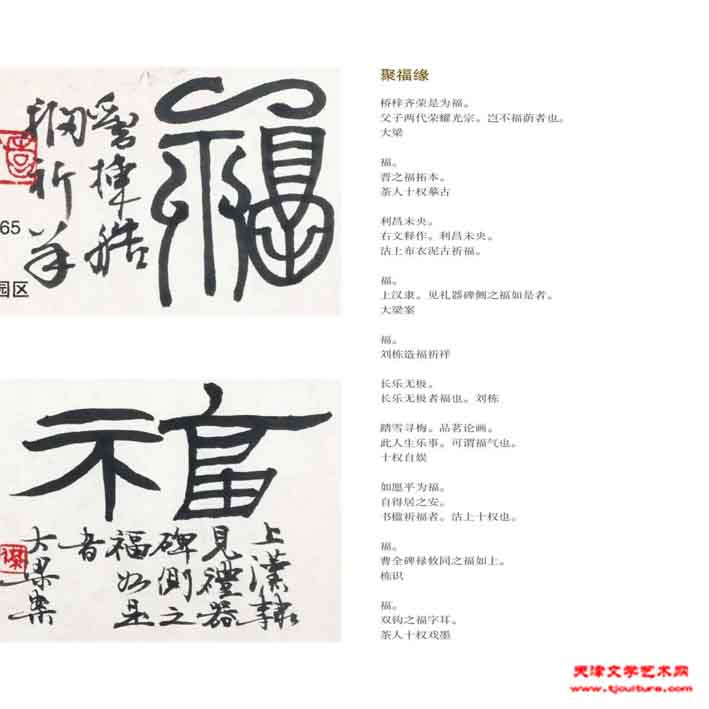 65
园区
福
上漢隸
見禮器
碑側之
福如是
者
大梁案
聚福缘
桥梓齐荣是为福。
父子两代荣耀光宗。岂不福荫者也。
大梁
福。
晋之福拓本。
茶人十权摹古
利昌未央。
右文释作。利昌未央。
沽上布衣泥古祈福。
福。
上汉隶。见礼器碑侧之福如是者。
大梁案
福。
刘栋造福祈祥
长乐无极。
长乐无极者福也。刘栋
踏雪寻梅。品茗论画。
此人生乐事。可谓福气也。
十权自娱
如愿平为福。
自得居之安。
书楹祈福者。沽上十权也。
福。
曹全碑禄攸同之福如上。
栋识
福。
双钩之福字耳。
茶人十权戏墨
天津文学艺术网
www.tjculture.com